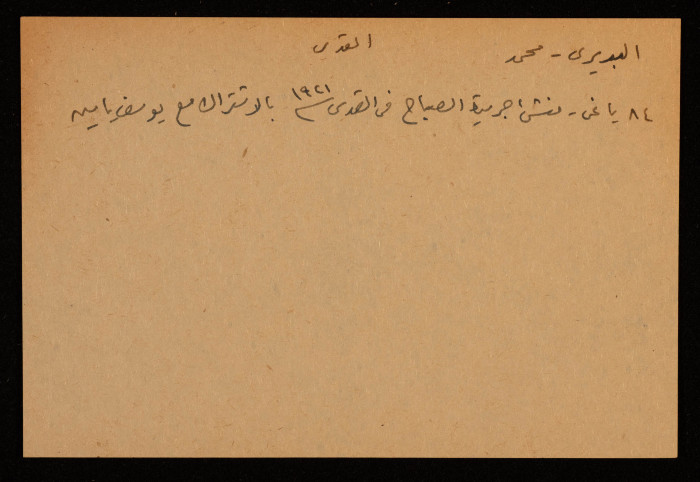 البديري - محمد القدس
٨٤ ياغي - منشئ جريدة الصباح في القدس سنة ١٩٢١ بالاشتراك مع يوسف ياسين